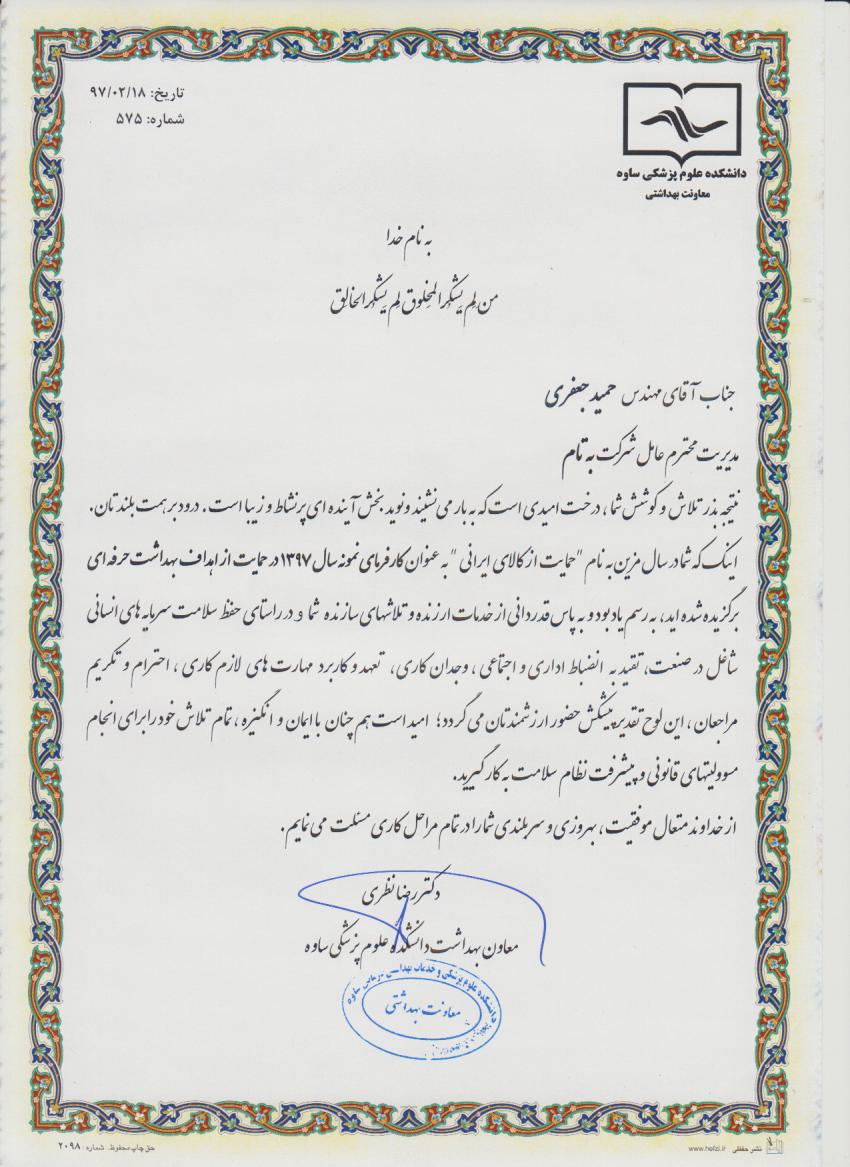 تاریخ: ۹۷/۰۲/۱۸
شماره: ۵۷۵
دانشکده علوم پزشکی ساوه
معاونت بهداشتی
به نام خدا
من لم یشکر المخلوق لم یشکر الخالق
جناب آقای مهندس حمید جعفری
مدیریت محترم عامل شرکت به تام
نتیجه بذر تلاش و کوشش شما، درخت امیدی است که به بار می نشیند و نوید بخش آینده ای پر نشاط و زیبا است. درود بر همت بلندتان.
اینک که شما در سال مزین به نام "حمایت از کالای ایرانی" به عنوان کارفرمای نمونه سال ۱۳۹۷ در حمایت از اهداف بهداشت حرفه ای
برگزیده شده اید، به رسم یادبود و به پاس قدردانی از خدمات ارزنده و تلاشهای سازنده شما و در راستای حفظ سلامت سرمایه های انسانی
شاغل در صنعت، تقید به انضباط اداری و اجتماعی، وجدان کاری، تعهد و کاربرد مهارت های لازم کاری، احترام و تکریم
مراجعان، این لوح تقدیر پیشکش حضور ارزشمندتان می گردد؛ امید است هم چنان با ایمان و انگیزه، تمام تلاش خود را برای انجام
مسوولیتهای قانونی و پیشرفت نظام سلامت به کار گیرید.
از خداوند متعال موفقیت، بهروزی و سربلندی شما را در تمام مراحل کاری مسئلت می نمایم.
دکتر رضا نظری
معاون بهداشت دانشکده علوم پزشکی ساوه
دانشکده علوم پزشکی و خدمات بهداشتی درمانی ساوه
معاونت بهداشتی
نشر حفظی www.hefzi.ir
حق چاپ محفوظ. شماره: ۲۰۹۸